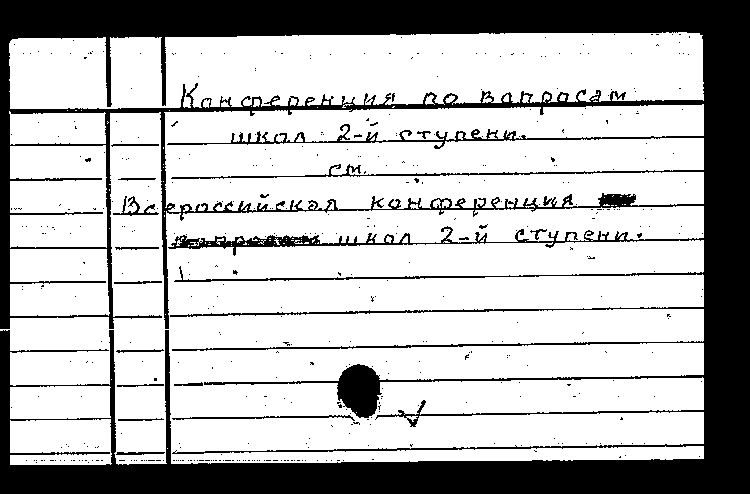 Конференция по вопросам
школ 2-й ступени.
см.
Всероссийская конференция
школ 2-й ступени.